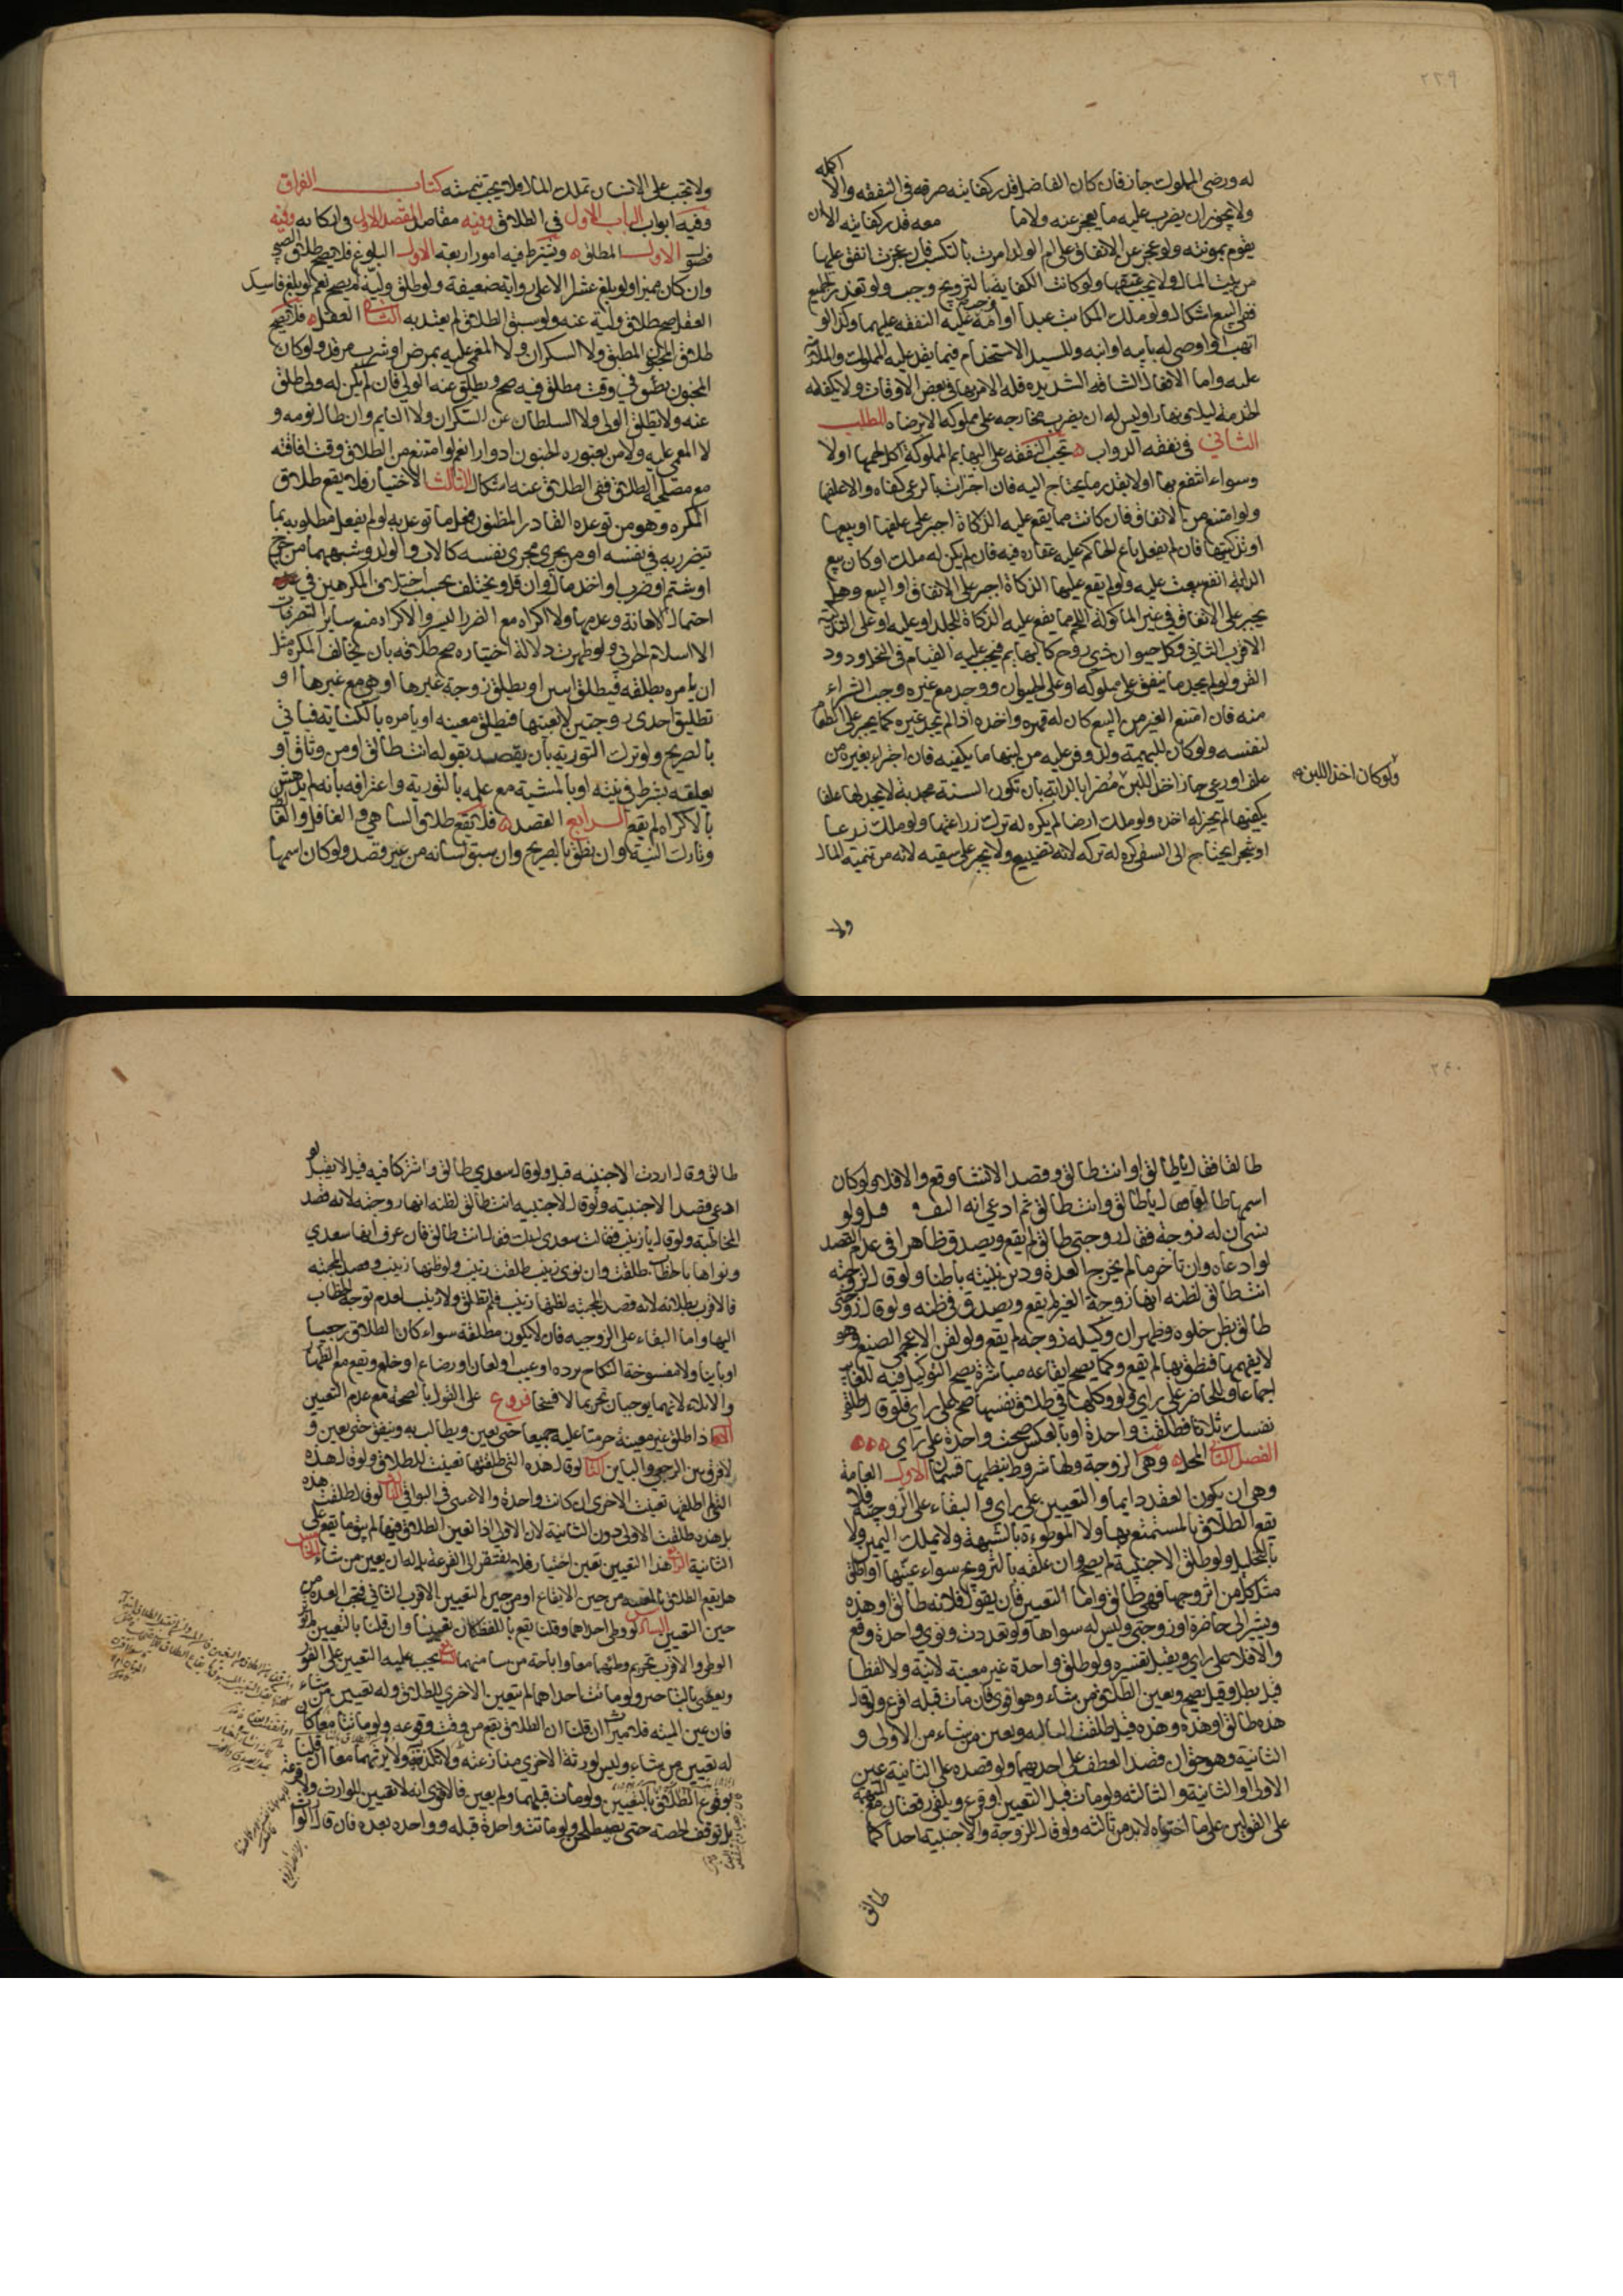 ٢٣٩
له ورضى المملوك جاز فان كان الفاضل قدر كفايته صرفه فى النفقه والا اكمله
ولا يجوز ان يضرب عليه ما يعجز عنه ولا ما معه قدر كفايته الا ان
يقوم بمونته ولو عجز عن الانفاق على ام الولد امرت بالتكسب فان عجزت انفق عليها
من بيت المال ولا يجب عتقها ولو كانت الكفايه بالتزويج وجب ولو تعذر الجميع
ففى البيع اشكال ولو ملك المكاتب عبدا او امة وجب عليه النفقه عليهما وكذا لو
اتهب او اوصى له بابيه او ابنه وللسيد الاستخدام فيما يقدر عليه المملوك والمداومة
عليه واما الافعال الشاقه الشديده فله الامر بها فى بعض الاوقات ولا يكلفه
الخدمة ليلا ونهارا وليس له ان يضرب مخارجه على مملوكه الا برضاه المطلب
الثانى فى نفقه الدواب تجب النفقه على البهايم المملوكة اكل لحمها او لا
وسواء انتفع بها او لا بقدر ما يحتاج اليه فان اجتزات بالرعى كفاه والا علفها
ولو امتنع من الانفاق فان كانت مما يقع عليه الذكاة اجبر على علفها او بيعها
او تذكيتها فان لم يفعل باع الحاكم عليه عقاره فيه فان لم يكن له ملك او كان بيع
الدابة انفع بيعت عليه ولو لم يقع عليها الذكاة اجبر على الانفاق او البيع وهل
يجبر على الانفاق فى غير الماكولة اللحم مما يقع عليه الذكاة للجلد او عليه او على التذكية
الاقرب الثانى وكل حيوان ذى روح كالبهايم فيجب عليه القيام فى النحل ودود
القز ولو لم يجد ما ينفق على مملوكه او على الحيوان ووجد مع غيره وجب الشراء
منه فان امتنع الغير من البيع كان له قهره واخذه اذا لم يجد غيره كما يجبر على الطعام
لنفسه ولو كان للبهيمة ولد وفر عليه من لبنها ما يكفيه فان اجتزاء بغيره من
علف او رعى جاز اخذ اللبن مضرا بالدابة بان تكون السنة مجدبة لا يجد لها علفا
ولو كان اخذ اللبن
يكفيها لم يجز له اخذه ولو ملك ارضا لم يكره له ترك زراعتها ولو ملك زرعا
او شجرا يحتاج الى السقى كره له تركه لانه تضييع ولا يجبر على سقيه لانه من تنمية المال
ولا
ولا تجب على الانسان تملك المال ولا تجب تنميته كتاب الفراق
وفيه ابواب الباب الاول فى الطلاق وفيه مقاصد المقصد الاول فى اركانه وفيه
فصول الاول المطلق ويشترط فيه امور اربعة الاول البلوغ فلا يصح طلاق الصبى
وان كان مميزا ولو بلغ عشرا الا على رواية ضعيفة ولو طلق وليه لم يصح نعم لو بلغ فاسد
العقل صح طلاق وليه عنه ولو سبق الطلاق لم يعتد به الثانى العقل فلا يصح
طلاق المجنون المطبق ولا السكران ولا المغمى عليه بمرض او شرب مرقد ولو كان
المجنون يفيق فى وقت فطلق فيه صح ويطلق عنه الولى فان لم يكن له ولى طلق
عنه ولا يطلق الولى ولا السلطان عن السكران ولا النايم وان طال نومه و
لا المغمى عليه ولا من يعتوره الجنون ادوارا نعم لو امتنع من الطلاق وقت افاقته
مع مصلحة الطلاق ففى الطلاق عنه اشكال الثالث الاختيار فلا يقع طلاق
المكره وهو من توعده القادر المظنون فعل ما توعد به لو لم يفعل مطلوبه بما
يتضرر به فى نفسه او من يجرى مجرى نفسه كالاب والولد وشبههما من جرح
او شتم او ضرب او اخذ مال وان قل ويختلف بحسب اختلاف المكرهين فى
احتمال الاهانة وعدمها ولا اكراه مع الضرر اليسير والاكراه منع ساير التصرفات
الا اسلام الحربى ولو ظهرت دلالة اختياره صح طلاقه بان يخالف المكره مثل
ان يامره بطلقه فيطلق اثنين او يطلق زوجة غيرها او هى مع غيرها او
تطليق احدى زوجتين لا بعينها فيطلق معينه او يامره بالكنايه فياتى
بالصريح ولو ترك التورية بان يقصد بقوله انت طالق او من وثاق او
يعلقه بشرط فى نيته او بالمشية مع علمه بالتورية واعترافه بانه لم يدهش
بالاكراه لم يقع الرابع القصد فلا يقع طلاق الساهى والغافل والغالط
وتارك النية وان نطق بالصريح وان سبق لسانه من غير قصد ولو كان اسمها
٢٤٠
طالقا فقال يا طالق او انت طالق وقصد الانشا وقع والا فلا ولو كان
اسمها طالعا فقال يا طالق وانت طالق ثم ادعى انه التف قبل ولو
نسى ان له زوجة فقال زوجتى طالق لم يقع ويصدق ظاهرا فى عدم القصد
لو ادعاه وان تاخر ما لم يخرج العدة ودين بنيته باطنا ولو قال لزوجته
انت طالق لظنه انها زوجة الغير لم يقع ويصدق فى ظنه ولو قال زوجتى
طالق بظن خلوه وظهر ان وكيله زوجه لم يقع ولو لقن الاعجمى الصيغ وهو
لا يفهمها فنطق بها لم يقع وكما يصح ايقاعه مباشرة يصح التوكيل فيه للغايب
اجماعا وللحاضر على راى ولو وكلها فى طلاق نفسها صح على راى فلو قال طلقى
نفسك ثلاثا فطلقت واحدة او بالعكس صحت واحدة على راى
الفصل الثانى المحل وهى الزوجة ولها شروط ينظمها قسمان الاول العامة
وهى ان يكون العقد دايما والتعيين على راى والبقاء على الزوجية فلا
يقع الطلاق بالمستمتع بها ولا الموطوءة بالشبهة ولا بملك اليمين ولا
بالتحليل ولو طلق الاجنبية لم يصح وان علقه بالتزويج سواء عينها او اطلق
مثل كل من اتزوجها فهى طالق واما التعيين فان يقول فلانه طالق او هذه
ويشير الى حاضرة او زوجتى وليس له سواها ولو تعددت ونوى واحدة وقع
والا فلا على راى ويقبل تفسيره ولو طلق واحدة غير معينة لا نية ولا لفظا
قيل بطل وقيل يصح ويعين الطلاق من يشاء وهو اقوى فان مات قبله اقرع ولو قال
هذه طالق او هذه وهذه قيل طلقت الثالثه ويعين من شاء من الاولى و
الثانية وهو حق ان قصد العطف على احديهما ولو قصده على الثانية عين
الاولى او الثانية والثالثه ولو مات قبل التعيين اقرع ويكفى رقعتان مع المبهمة
على القولين على ما اخترناه لا بد من ثالثه ولو قال للزوجة والاجنبية احداكما
طالق
طالق وقال اردت الاجنبيه قبل ولو قال سعدى طالق واشتركا فيه قيل لا يقبل لو
ادعى قصد الاجنبية ولو قال للاجنبيه انت طالق لظنه انها زوجته لانه قصد
المخاطبة ولو قال يا زينب فقالت سعدى لبيك فقال انت طالق فان عرف انها سعدى
ونواها بالخطاب طلقت وان نوى زينب طلقت زينب ولو ظنها زينب وقصد المجيبه
فالاقرب بطلانه لانه قصد المجيبه لظنها زينب فلم تطلق ولا زينب لعدم توجه الخطاب
اليها واما البقاء على الزوجيه فان لا يكون مطلقة سواء كان الطلاق رجعيا
او باينا ولا مفسوخة النكاح برده او عيب او لعان او رضاع او خلع ويقع مع الظهار
والايلاء لانهما يوجبان تحريما لا فسخا فروع على القول بالصحة مع عدم التعيين
اذا طلق غير معينة حرمتا عليه جميعا حتى يعين ويطالب به وينفق حتى يعين و
لا فرق بين الرجعى والباين الثانى لو قال هذه التى طلقتها تعينت للطلاق ولو قال هذه
التى لم اطلقها تعينت الاخرى ان كانت واحدة والا عين فى البواقى الثالث لو قال طلقت هذه
بل هذه طلقت الاولى دون الثانية لان الاولى اذا تعين الطلاق فيها لم يبق ما يقع على
الثانية الرابع هذا التعيين تعيين اختيار فلا يفتقر الى القرعة بل له ان يعين من شاء الخامس
هل يقع الطلاق بالمعينه من حين الايقاع او من حين التعيين الاقرب الثانى فتجب العدة من
حين التعيين السادس لو وطى احداهما وقلنا يقع باللفظ كان تعيينا وان قلنا بالتعيين لم يؤثر
الوطى والاقرب تحريم وطئهما معا واباحة من شا منهما السابع يجب عليه التعيين على الفور
ويعصى بالتاخير ولو ماتت احداهما لم يتعين الاخرى للطلاق وله تعيين من شاء
فان عين الميته فلا ميراث ان قلنا ان الطلاق يقع من وقت وقوعه ولو ماتتا معا كان
له تعيين من يشاء وليس لورثة الاخرى منازعته ولا يرثهما معا ان قلنا
بوقوع الطلاق بالتعيين ولو مات قبلهما ولم يعين فالاقوى انه لا تعيين للوارث ولا قرعة
بل توقف الحصة حتى يصطلحن ولو ماتت واحدة قبله وواحده بعده فان قال الوارث